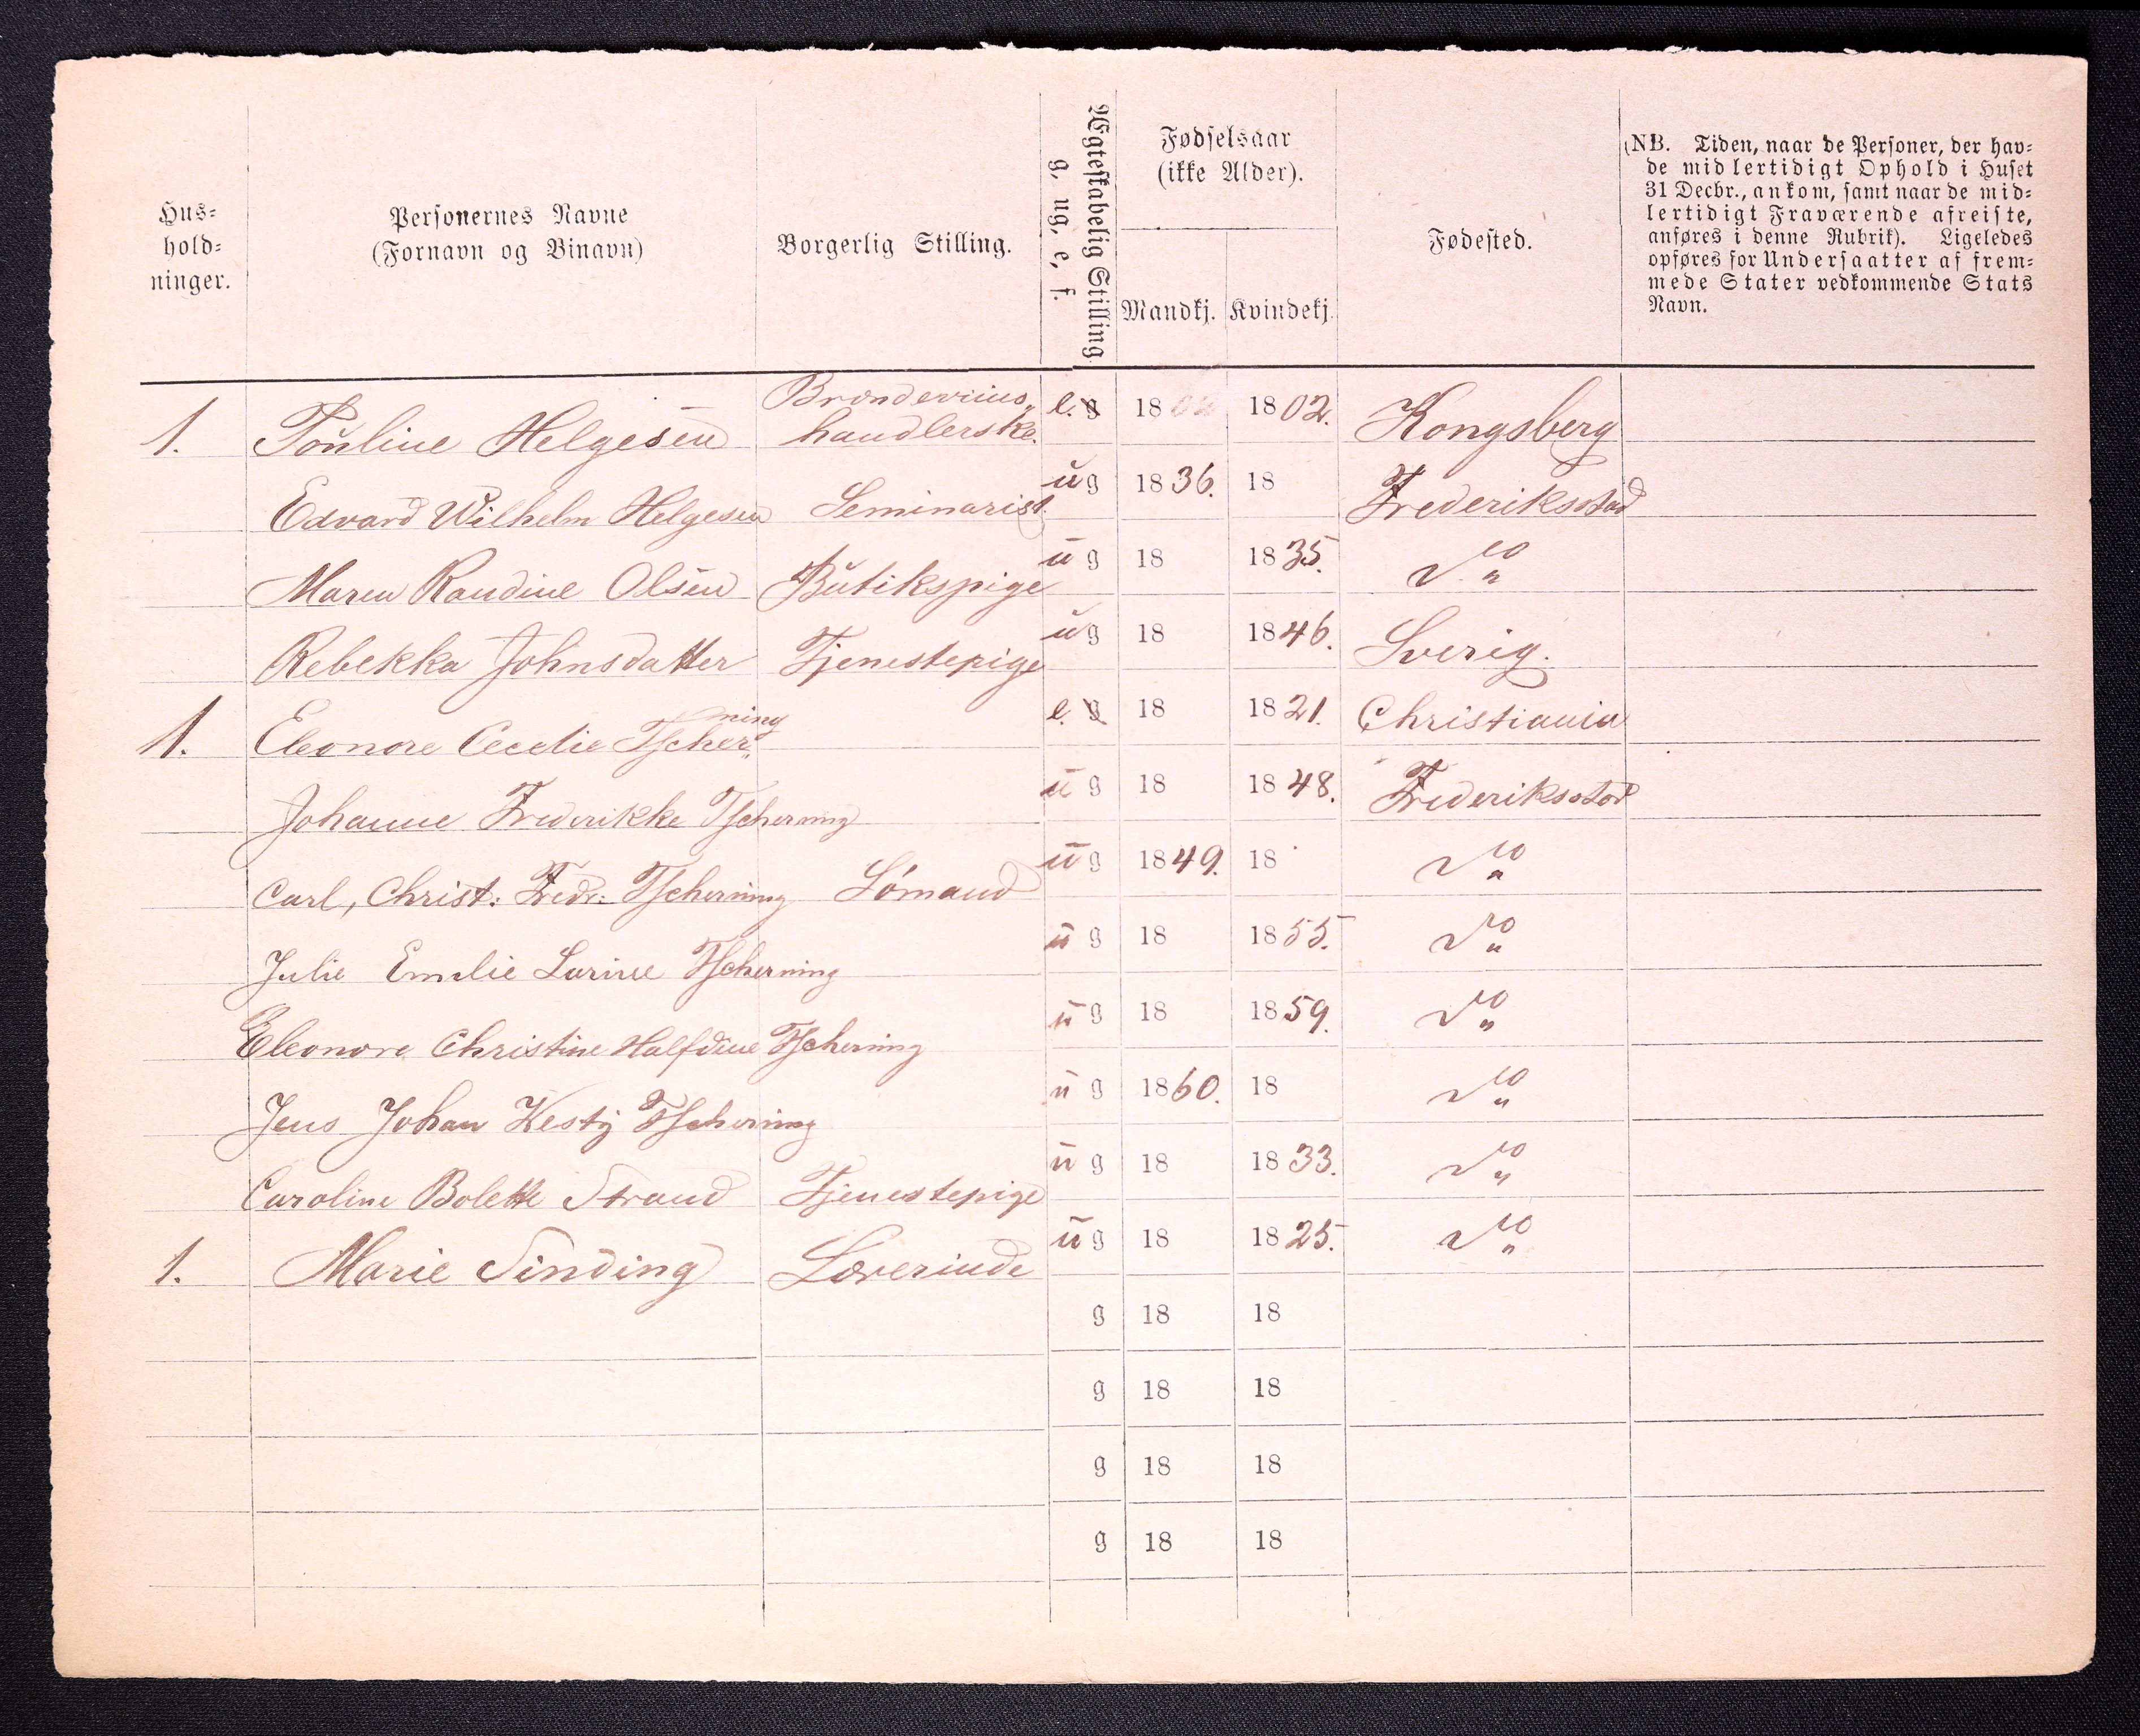 Hus=
hold=
ninger.
Personernes Navne
(Fornavn og Binavn)
Borgerlig Stilling.
Ægteskabelig Stilling
g, ug, e, f.
Fødselsaar
(ikke Alder).
Mandkj. Kvindekj.
Fødested.
(NB. Tiden, naar de Personer, der hav=
de midlertidigt Ophold i Huset
31 Decbr., ankom, samt naar de mid=
lertidigt Fraværende afreiste,
anføres i denne Rubrik). Ligeledes
opføres for Undersaatter af frem=
mede Stater vedkommende Stats
Navn.
1. Pouline Helgesen Brændeviins„ handlerske. e. g 1802 1802. Kongsberg
Edvard Wilhelm Helgesen Seminarist ug 1836. 18 Frederiksstad
Maren Randine Olsen Butikspige ug 18 1835. do „
Rebekka Johnsdatter Tjenestepige ug 18 1846. Sverig.
1. Eleonore Cecelie Tscher„ ning e. g 18 1821. Christiania
Johanne Frederikke Tscherning ug 18 1848. Frederiksstad
Carl, Christ: Fredr: Tscherning Sömand ug 1849. 18 do „
Julie Emilie Larine Tscherning ug 18 1855. do „
Eleonore Christine Halfdine Tscherning ug 18 1859. do „
Jens Johan Tscherning ug 1860. 18 do „
Caroline Bolette Strand Tjenestepige ug 18 1833. do „
1. Marie Sinding Lærerinde ug 18 1825. do „
g 18 18
g 18 18
g 18 18
g 18 18